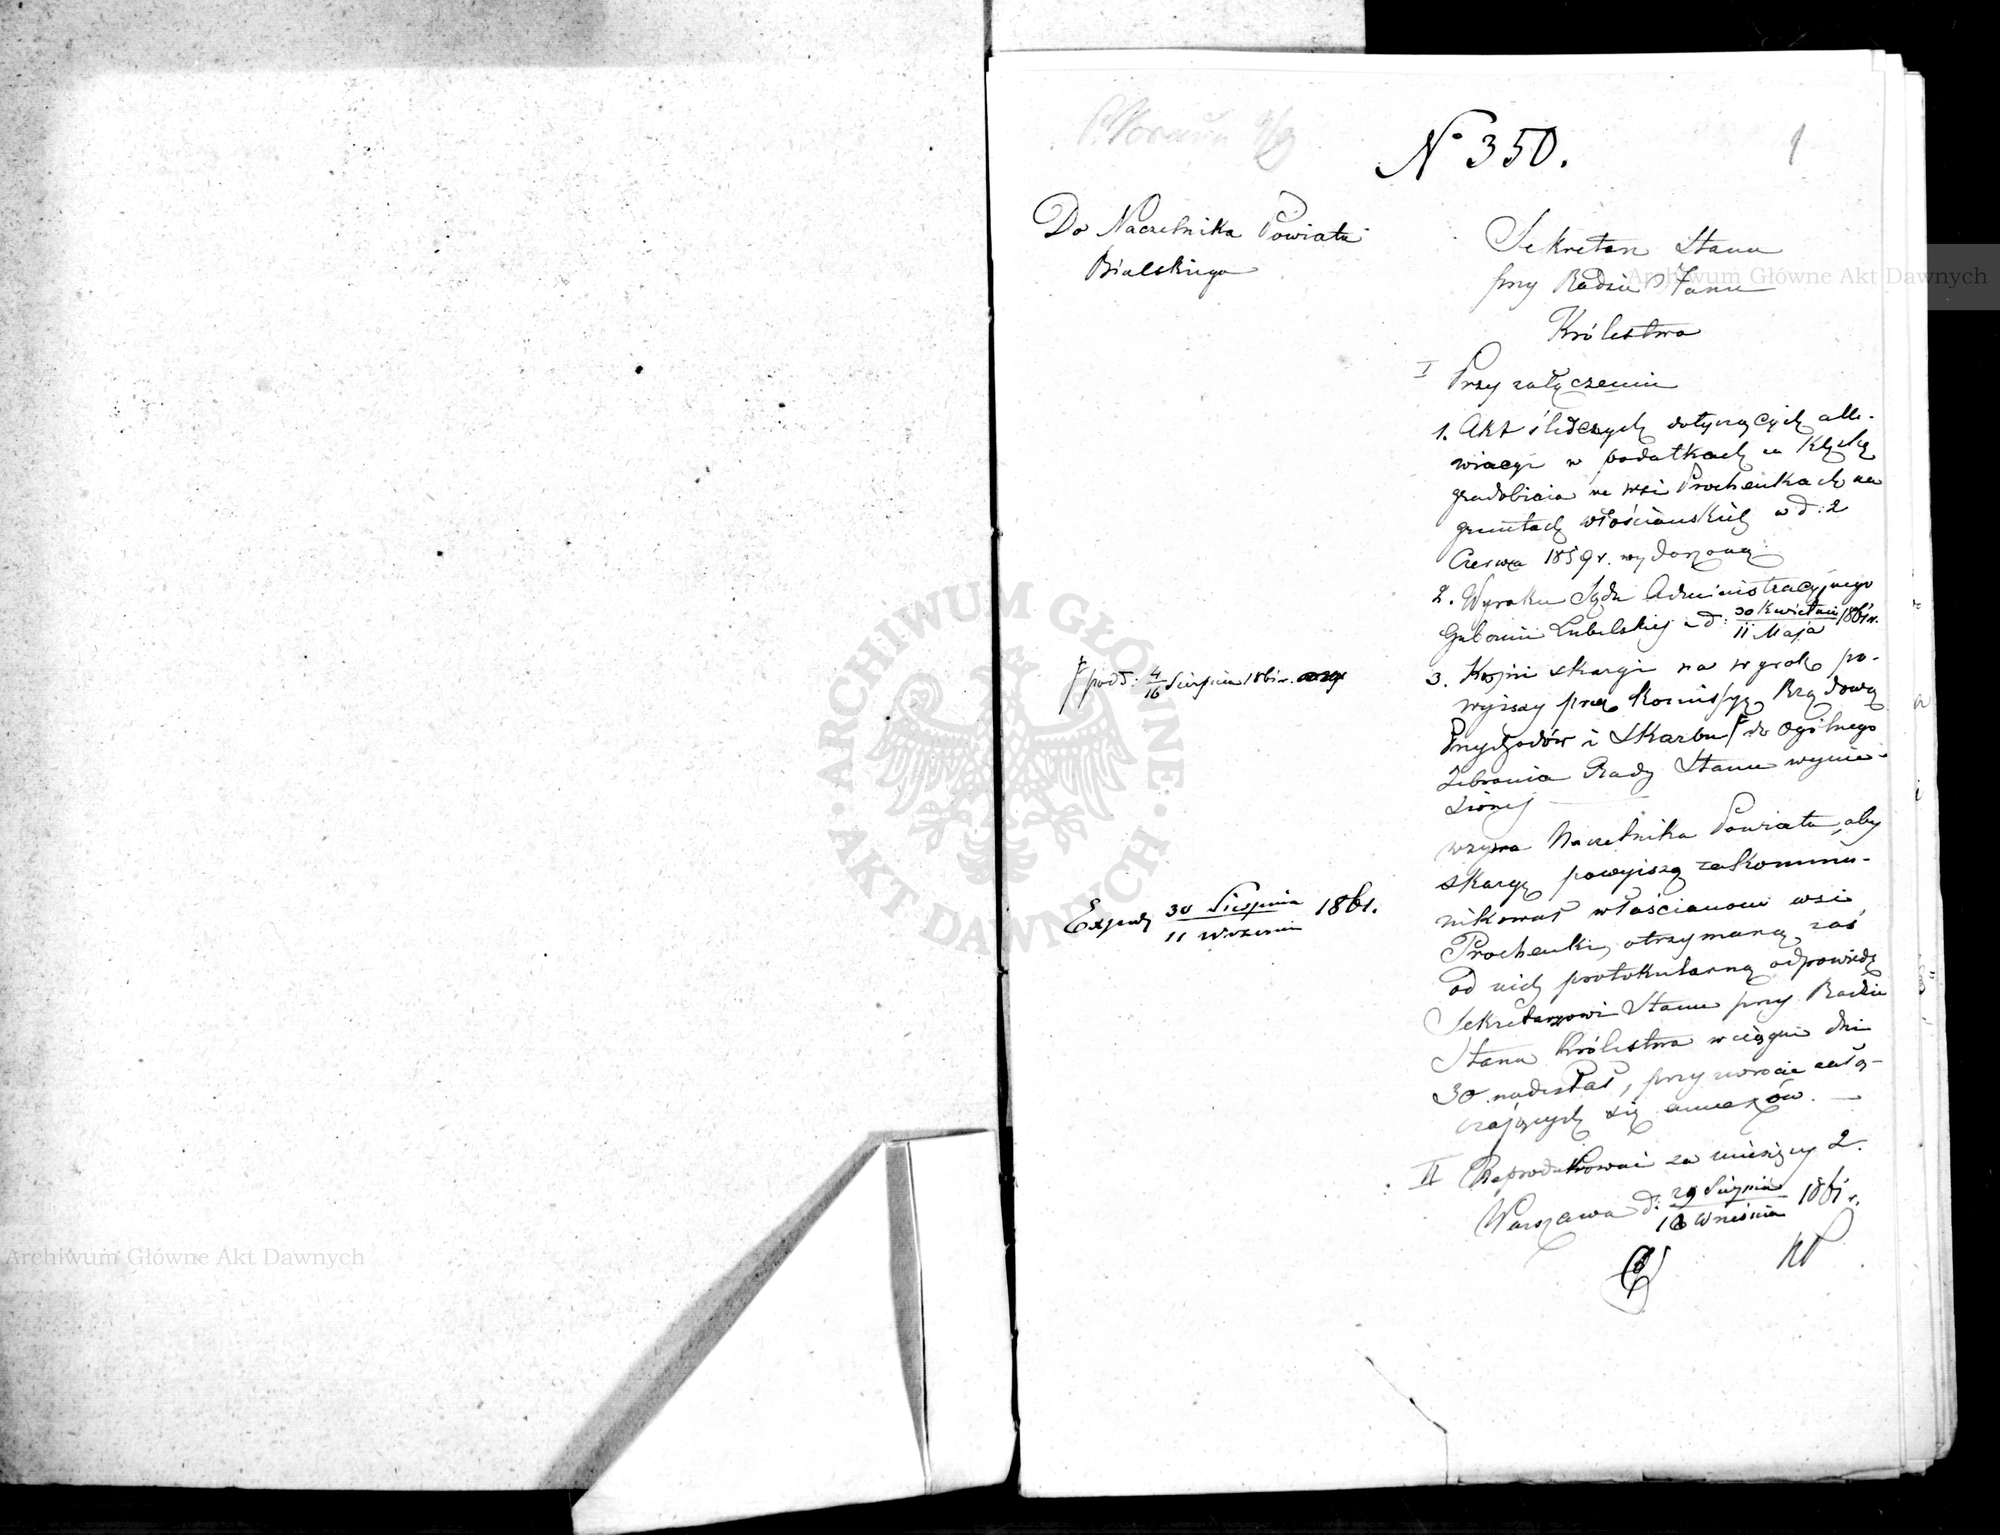 N° 350.
1
Do Naczelnika Powiatu
Bialskiego
Sekretarz Stanu
przy Radzie Stanu
Królestwa
I Przy załączeniu
1. Akt śledczych dotyczących alle-
wiacyi w podatkach za klęskę
gradobicia na wsi Prochenkach na
gruntach włościańskich w d: 2
Czerwca 1859 r. wydarzoną
2. Wyroku Sądu Administracyjnego
Gubernii Lubelskiej z d: 30 Kwietnia / 11 Maja 1861 r.
3. Kopii skargi na wyrok po-
wyższy przez Kommissyę Rządową
Przychodów i Skarbu do Ogólnego
Zebrania Rady Stanu wynie-
sionej
pod d: 4/16 Sierpnia 1861 r.
wzywa Naczelnika Powiatu, aby
skargę powyższą zakommu-
nikował włościanom wsi
Prochenki, otrzymaną zaś
od nich protokularną odpowiedź
Sekretarzowi Stanu przy Radzie
Stanu Królestwa w ciągu dni
30 nadesłał, przy zwrocie załą-
czających się annexów.
II Reprodukować za miesięcy 2.
Warszawa d: 29 Sierpnia / 10 Września 1861 r.
Exped 30 Sierpnia / 11 Września 1861.
Archiwum Główne Akt Dawnych
ARCHIWUM GŁÓWNE · AKT DAWNYCH ·
Archiwum Główne Akt Dawnych